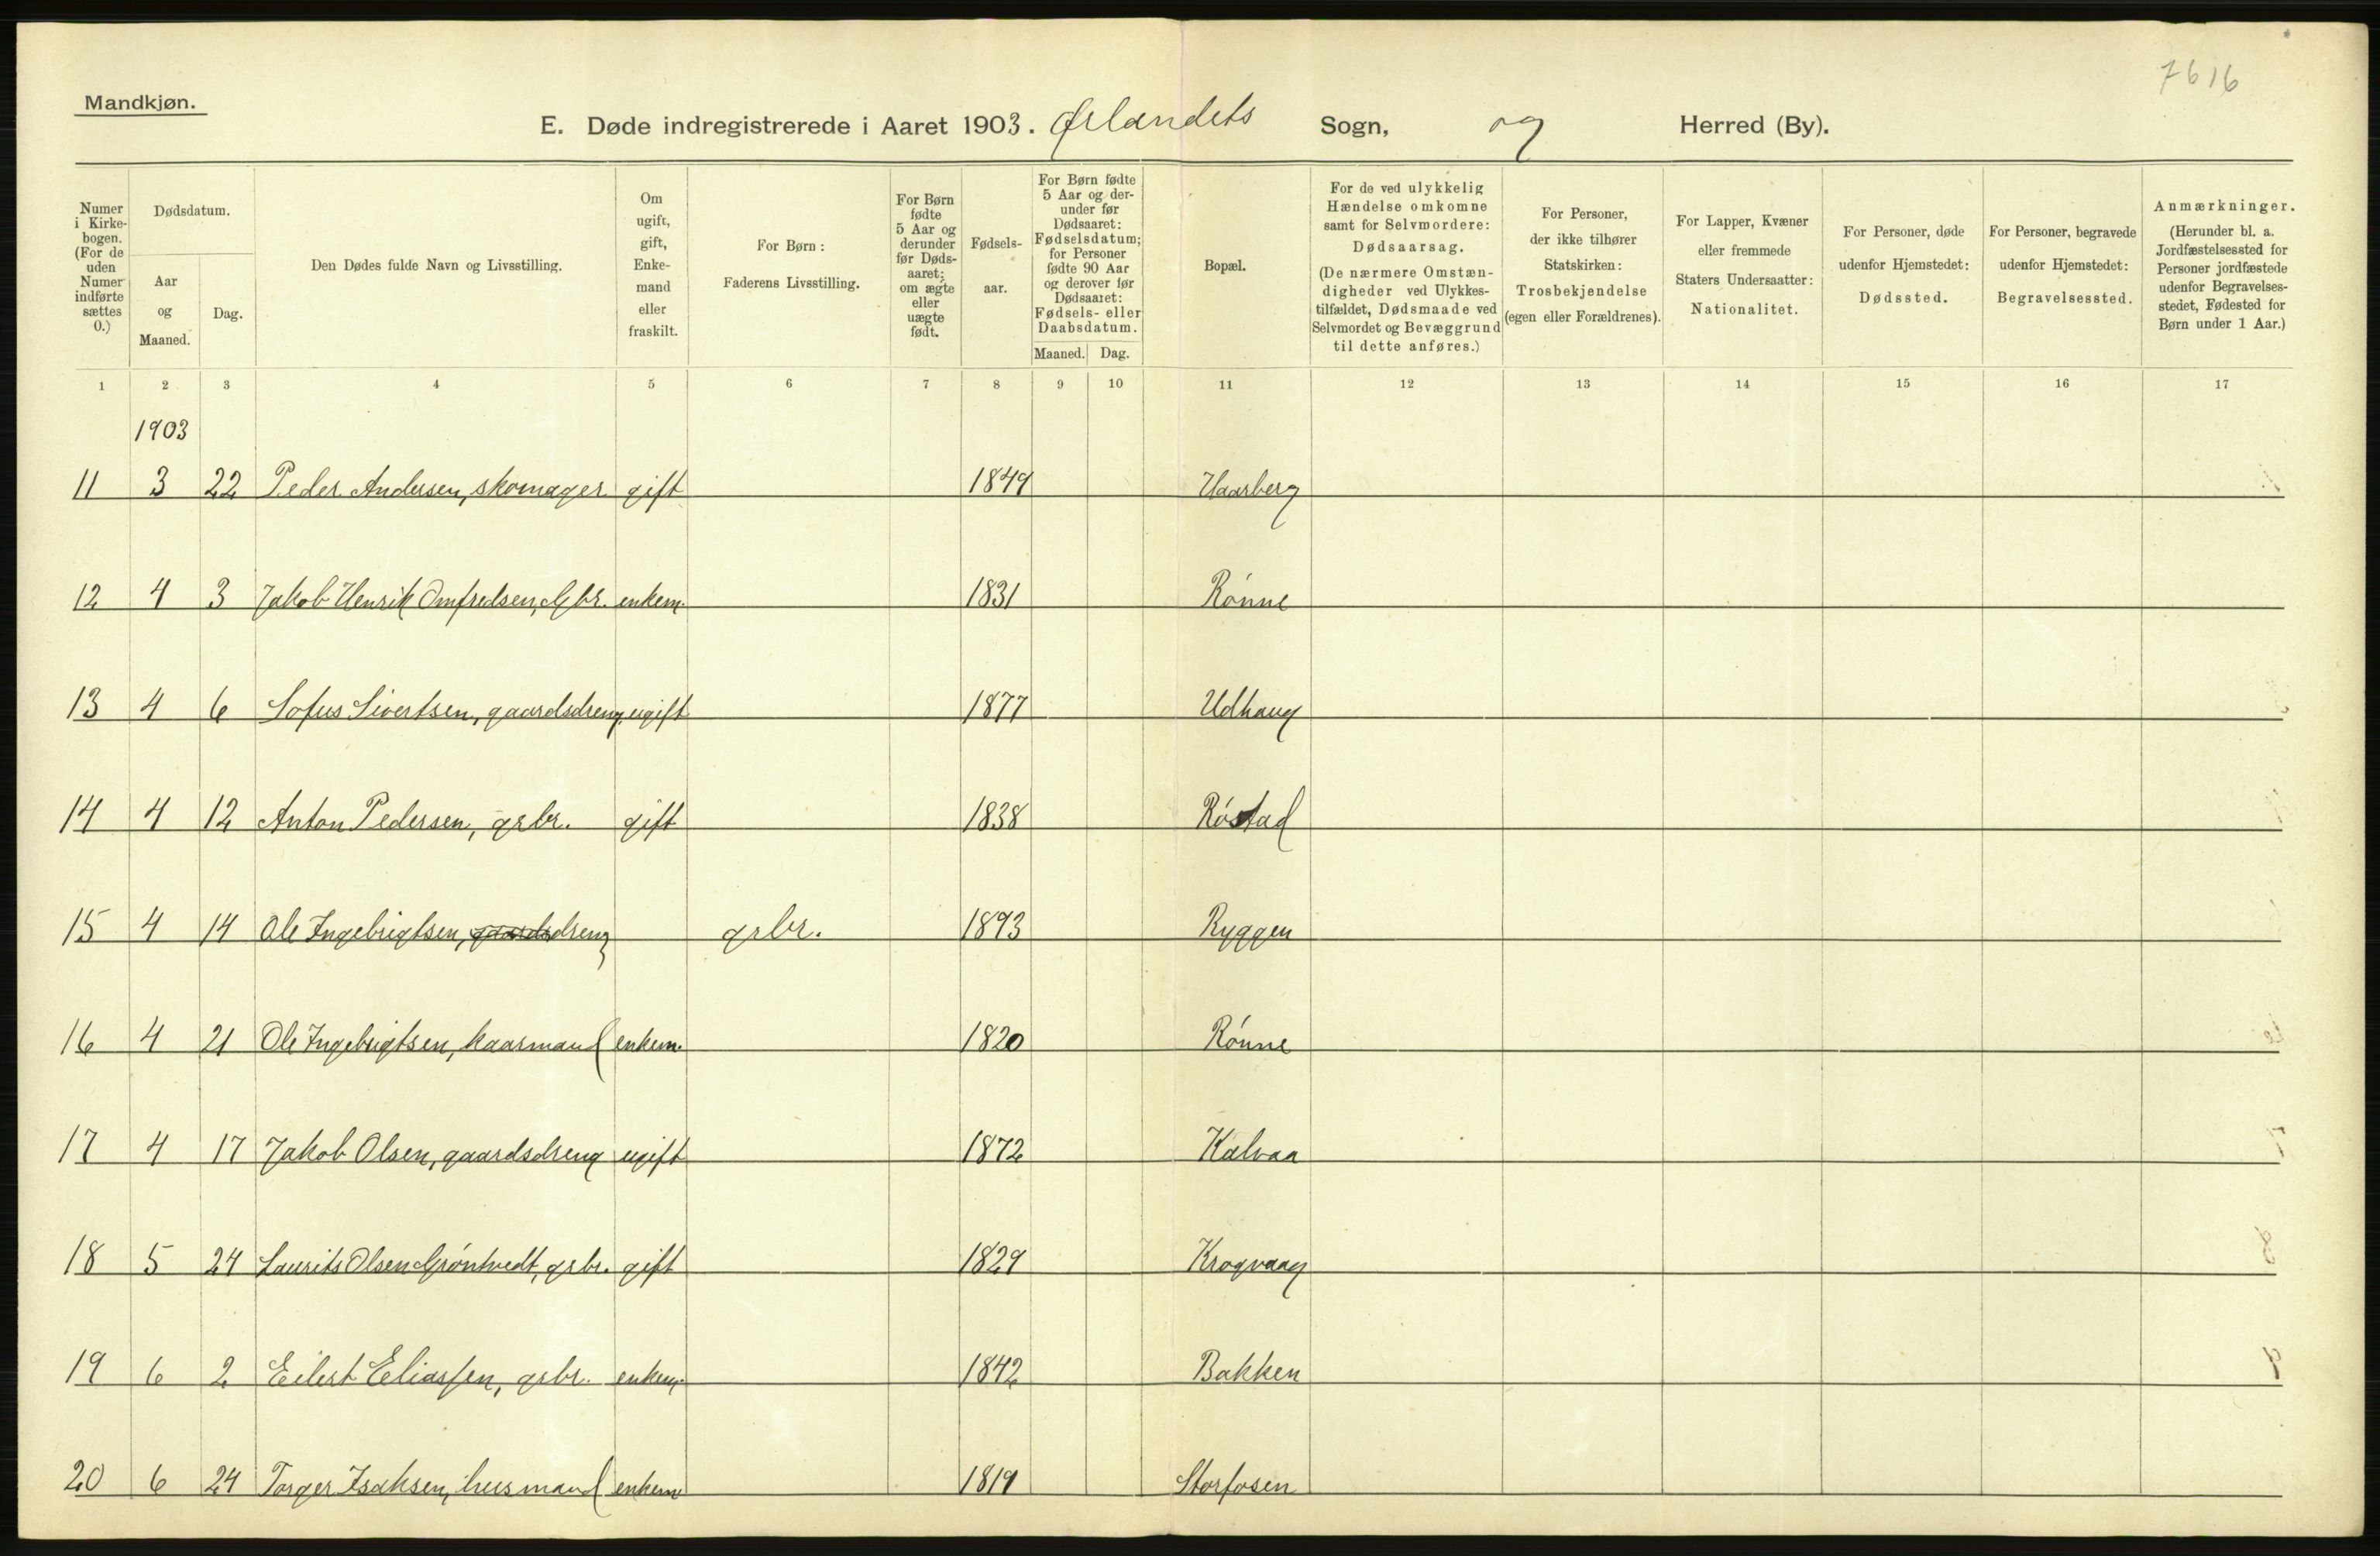 7616
Mandkjøn.
E. Døde indregistrerede i Aaret 1903. Ørlandets Sogn, og Herred (By).
Numer i Kirkebogen. (For de uden Numer indførte sættes 0.)
Dødsdatum.
Aar og Maaned.
Dag.
Den Dødes fulde Navn og Livsstilling.
Om ugift, gift, Enkemand eller fraskilt.
For Børn: Faderens Livsstilling.
For Børn fødte 5 Aar og derunder før Dødsaaret: om ægte eller uægte født.
Fødselsaar.
For Børn fødte 5 Aar og derunder før Dødsaaret: Fødselsdatum; for Personer fødte 90 Aar og derover før Dødsaaret: Fødsels- eller Daabsdatum.
Maaned. Dag.
Bopæl.
For de ved ulykkelig Hændelse omkomne samt for Selvmordere: Dødsaarsag. (De nærmere Omstændigheder ved Ulykkestilfældet, Dødsmaade ved Selvmordet og Bevæggrund til dette anføres.)
For Personer, der ikke tilhører Statskirken: Trosbekjendelse (egen eller Forældrenes).
For Lapper, Kvæner eller fremmede Staters Undersaatter: Nationalitet.
For Personer, døde udenfor Hjemstedet: Dødssted.
For Personer, begravede udenfor Hjemstedet: Begravelsessted.
Anmærkninger. (Herunder bl. a. Jordfæstelsessted for Personer jordfæstede udenfor Begravelsesstedet, Fødested for Børn under 1 Aar.)
1 2 3 4 5 6 7 8 9 10 11 12 13 14 15 16 17
1903
11 3 22 Peder Andersen, skomager gift 1849 Haarberg
12 4 3 Jakob Henrik Omfredsen, Gbr. enkem. 1831 Rønne
13 4 6 Sofus Sivertsen, gaardsdreng, ugift 1877 Udhaug
14 4 12 Anton Pedersen, grbr. gift 1838 Røstad
15 4 14 Ole Ingebrigtsen, gaardsdreng grbr. 1893 Ryggen
16 4 21 Ole Ingebrigtsen, kaarmand enkem. 1820 Rønne
17 4 17 Jakob Olsen, gaardsdreng ugift 1872 Kalvaa
18 5 24 Laurits Olsen Grøntvedt, grbr. gift 1829 Krogvaag
19 6 2 Eilert Eliassen, grbr. enkem. 1842 Bakken
20 6 24 Torger Isaksen, husmand enkem 1819 Storfosen